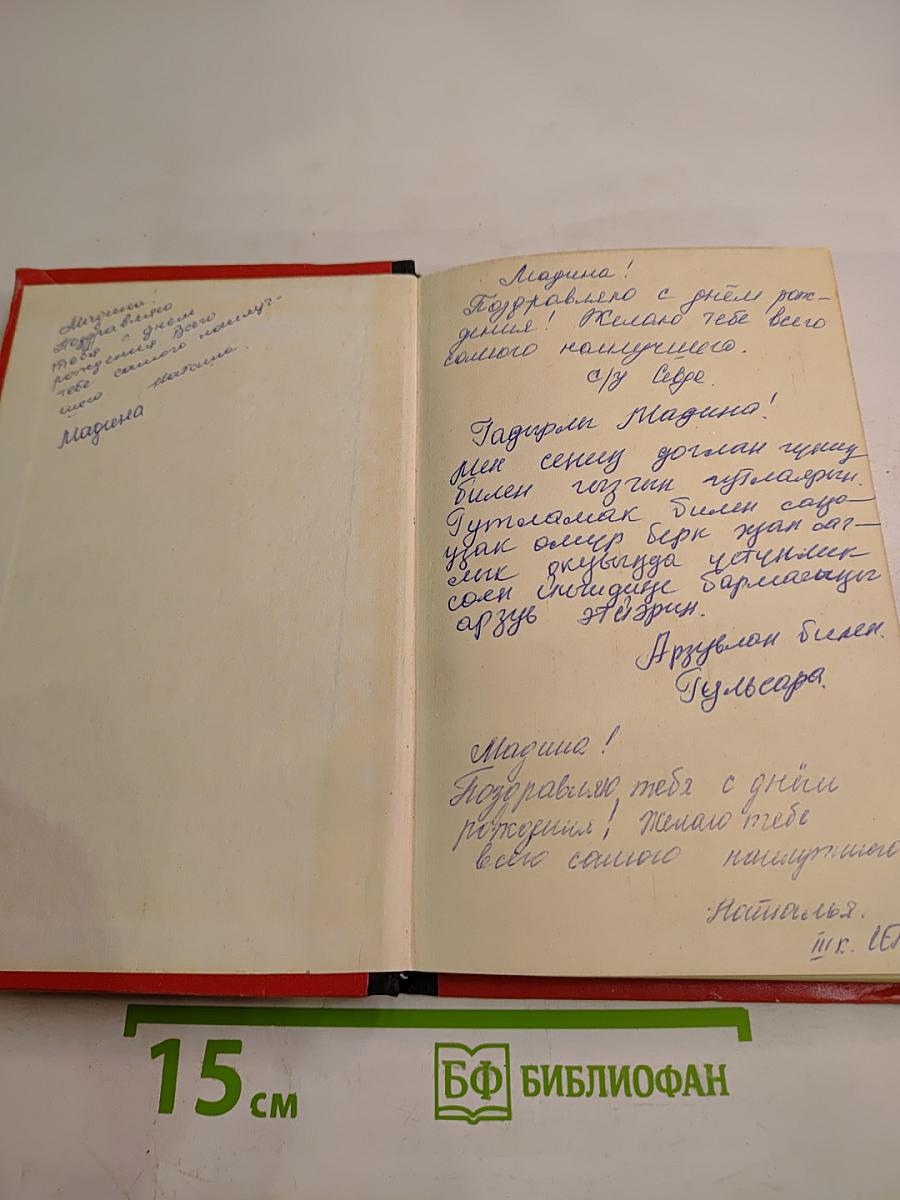 Поздравляю
тебя с днем
рождения. Всего
тебе самого наилуч-
шего Наташа.
Мадина
Мадина!
Поздравляю с днём рож-
дения! Желаю тебе всего
самого наилучшего.
с/у Севда.
Гадырлы Мадина!
Мен сениң доглан гүнүң
билен гызгын гутлаярын.
Гутламак билен саңа
узак өмүр берк җан саг-
лык окувыңда үстүнлик
арзув эдйәрин.
Арзувлан билен.
Гульсара.
Мадина!
Поздравляю тебя с днём
рождения! Желаю тебе
всего самого наилучшего
Наталья.
III к.
15 см
БФ БИБЛИОФАН